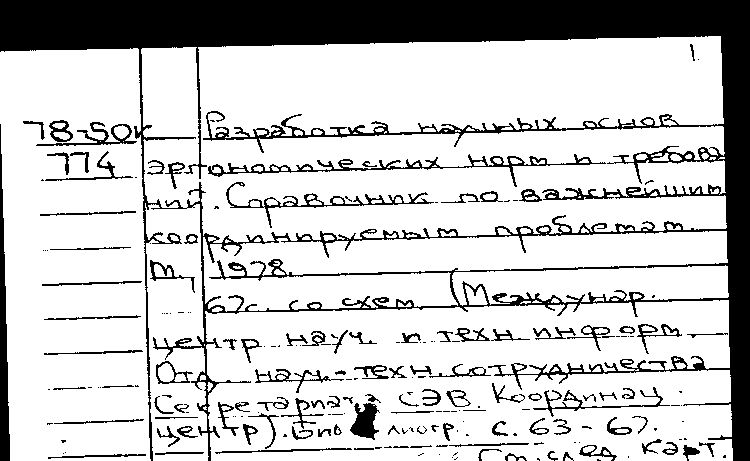 1
78-50к Разработка научных основ
774 эргономических норм и требова
ний. Справочник по важнейшим
координируемым проблемам.
М., 1978.
67с. со схем. (Междунар.
центр науч. и техн. информ.
Отд. науч.-техн. сотрудничества
Секретариата СЭВ. Координац.
центр). Библиогр. с. 63-67.
См. след. карт.